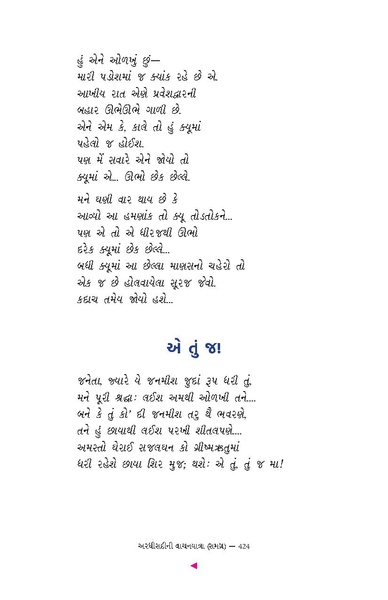 હું એને ઓળખું છું—
મારી પડોશમાં જ ક્યાંક રહે છે એ.
આખીય રાત એણે પ્રવેશદ્વારની
બહાર ઊભેઊભે ગાળી છે.
એને એમ કે, કાલે તો હું ક્યૂમાં
પહેલો જ હોઈશ.
પણ મેં સવારે એને જોયો તો
ક્યૂમાં એ... ઊભો છેક છેલ્લે.
મને ઘણી વાર થાય છે કે
આવ્યો આ હમણાંક તો ક્યૂ તોડતોકને...
પણ એ તો એ ધીરજથી ઊભો
દરેક ક્યૂમાં છેક છેલ્લે...
બધી ક્યૂમાં આ છેલ્લા માણસનો ચહેરો તો
એક જ છે હોલવાયેલા સૂરજ જેવો.
કદાચ તમેય જોયો હશે...
એ તું જ!
જનેતા, જ્યારે વે જનમીશ જુદાં રૂપ ધરી તું,
મને પૂરી શ્રદ્ધાઃ લઈશ અમથી ઓળખી તને....
બને કે તું કો' દી જનમીશ તરુ થૈ ભવરણે,
તને હું છાયાથી લઈશ પરખી શીતલપણે....
અમસ્તો ઘેરાઈ સજલઘન કો ગ્રીષ્મઋતુમાં
ધરી રહેશે છાયા શિર મુજ; થશેઃ એ તું, તું જ મા!
અરધીસદીની વાચનયાત્રા (સમગ્ર) — 424